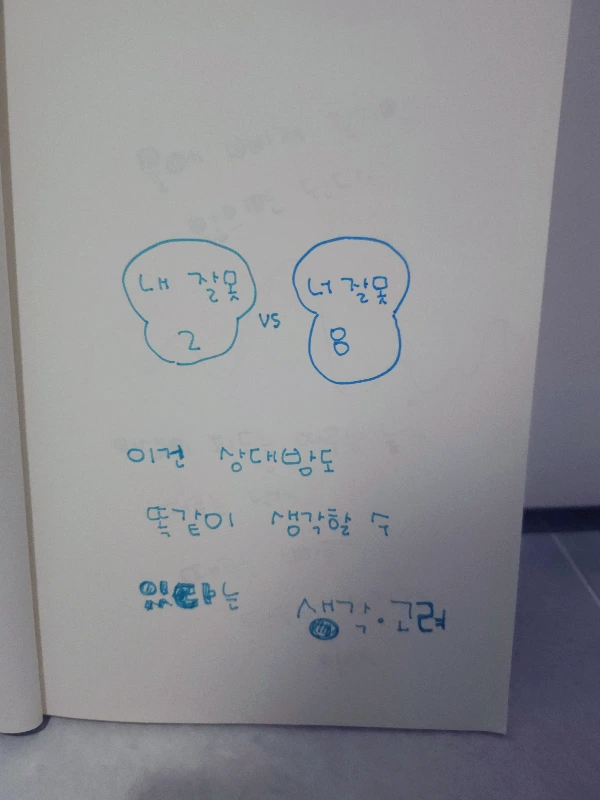 내 잘못 vs 너 잘못
2 8
이건 상대방도
똑같이 생각할 수
있다는 생각·고려